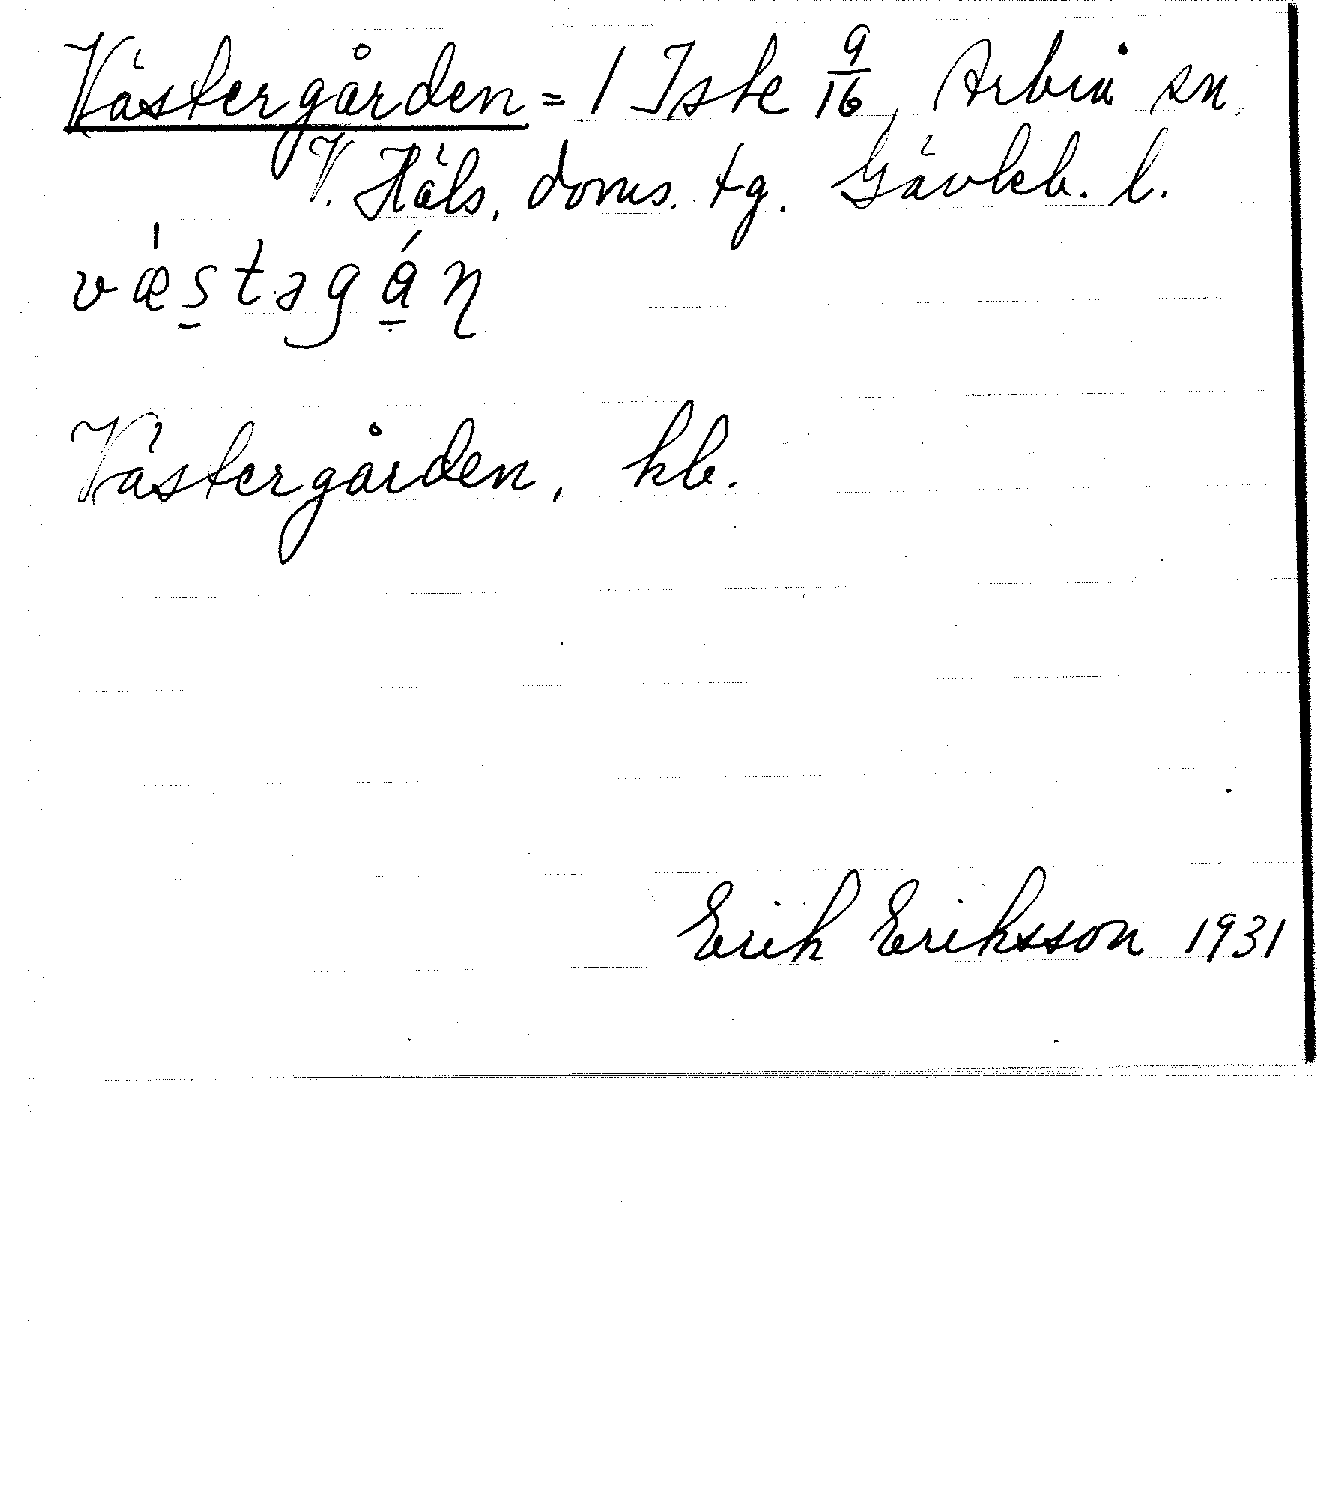 Västergården = 1 Iste 9/16, Arbrå sn
V. Häls. doms. tg. Gävleb. l.
væ̀s̠təgá̠ɳ
Västergården, kb.
Erik Eriksson 1931